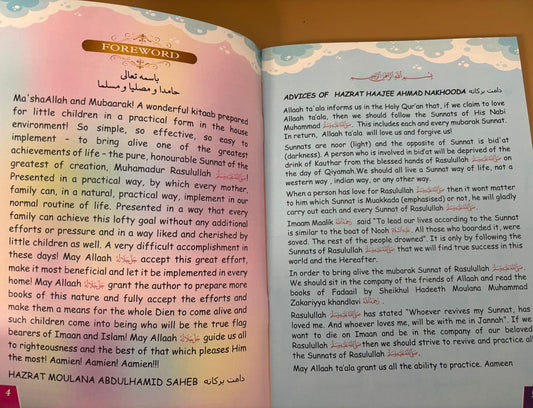 FOREWORD
باسمه تعالى
حامدا و مصليا و مسلما
Ma'shaAllah and Mubaarak! A wonderful kitaab prepared
for little children in a practical form in the home
environment! So simple, so effective, so easy to
implement - to bring alive one of the greatest
achievements of life – the pure, honourable Sunnat of the
greatest of creation, Muhamadur Rasulullah ﷺ!
Presented in a practical way, by which every mother,
family can, in a natural, practical way, implement in our
normal routine of life. Presented in a way that every
family can achieve this lofty goal without any additional
efforts or pressure and in a way liked and cherished by
little children as well. A very difficult accomplishment in
these days! May Allaah accept this great effort,
make it most beneficial and let it be implemented in every
home! May Allaah grant the author to prepare more
books of this nature and fully accept the efforts and
make them a means for the whole Dien to come alive and
such children come into being who will be the true flag
bearers of Imaan and Islam! May Allaah guide us all
to righteousness and the best of that which pleases Him
the most! Aamien! Aamien! Aamien!!!
HAZRAT MOULANA ABDULHAMID SAHEB دامت بركاته
4
ADVICES OF HAZRAT HAAJEE AHMAD NAKHOODA دامت بركاته
Allaah ta'ala informs us in the Holy Qur'an that, if we claim to love
Allaah ta'ala, then we should follow the Sunnats of His Nabi
Muhammad ﷺ. This includes each and every mubarak Sunnat.
In return, Allaah ta'ala will love us and forgive us!
Sunnats are noor (light) and the opposite of Sunnat is bid'at
(darkness). A person who is involved in bid'at will be deprived of the
drink of Kauthar from the blessed hands of Rasulullah ﷺ on
the day of Qiyamah.We should all live a Sunnat way of life, not a
western way , indian way, or any other way.
When a person has love for Rasulullah ﷺ then it wont matter
to him which Sunnat is Muakkada (emphasised) or not, he will gladly
carry out each and every Sunnat of Rasulullah ﷺ
Imaam Maalik said "To lead our lives according to the Sunnat
is similar to the boat of Nooh . All those who boarded it, were
saved. The rest of the people drowned". It is only by following the
Sunnats of Rasulullah ﷺ that we will find true success in this
world and the Hereafter.
In order to bring alive the mubarak Sunnat of Rasulullah ﷺ
We should sit in the company of the friends of Allaah and read the
books of Fadaail by Sheikhul Hadeeth Moulana Muhammad
Zakariyya khandlavi .
Rasulullah ﷺ has stated "Whoever revives my Sunnat, has
loved me. And whoever loves me, will be with me in Jannah". If we
want to die on Imaan and be in the company of our beloved
Rasulullah ﷺ then we should strive to revive and practice all
the Sunnats of Rasulullah ﷺ.
May Allaah ta'ala grant us all the ability to practice. Aameen